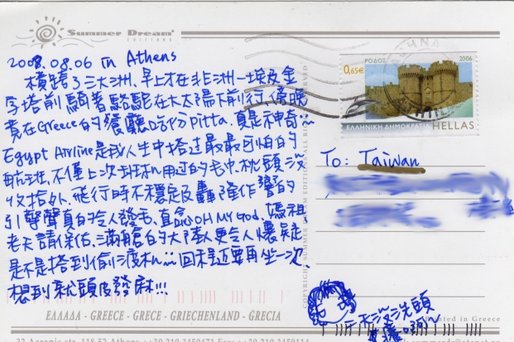 Summer Dream
EDITIONS
2008.08.06 in Athens
橫跨了三大洲、早上在非洲—埃及金
字塔前顧著駱駝在大太陽下前行、傍晚
竟在Greece的餐廳吃份Pitta,真是神奇
Egypt Airline是我人生中搭過最最可怕的
航班,不僅上次班
用過的毛巾,枕頭沒
收拾外,飛行時不穩定及轟隆作響的
引擎聲真的令人發毛,直念OH MY GOD、媽祖
老天請保佑,滿艙的大陸人更令人懷疑
是不是搭到偷渡机...回程還要再坐一次
想到就頭皮發麻!!!
ΕΛΛΑΔΑ - GREECE - GRECE - GRIECHENLAND - GRECIA
0,65€
ΡΟΔΟΣ
2006
ΕΛΛΗΝΙΚΗ ΔΗΜΟΚΡΑΤΙΑ
HELLAS
To: Taiwan
沒洗頭
Printed in Greece